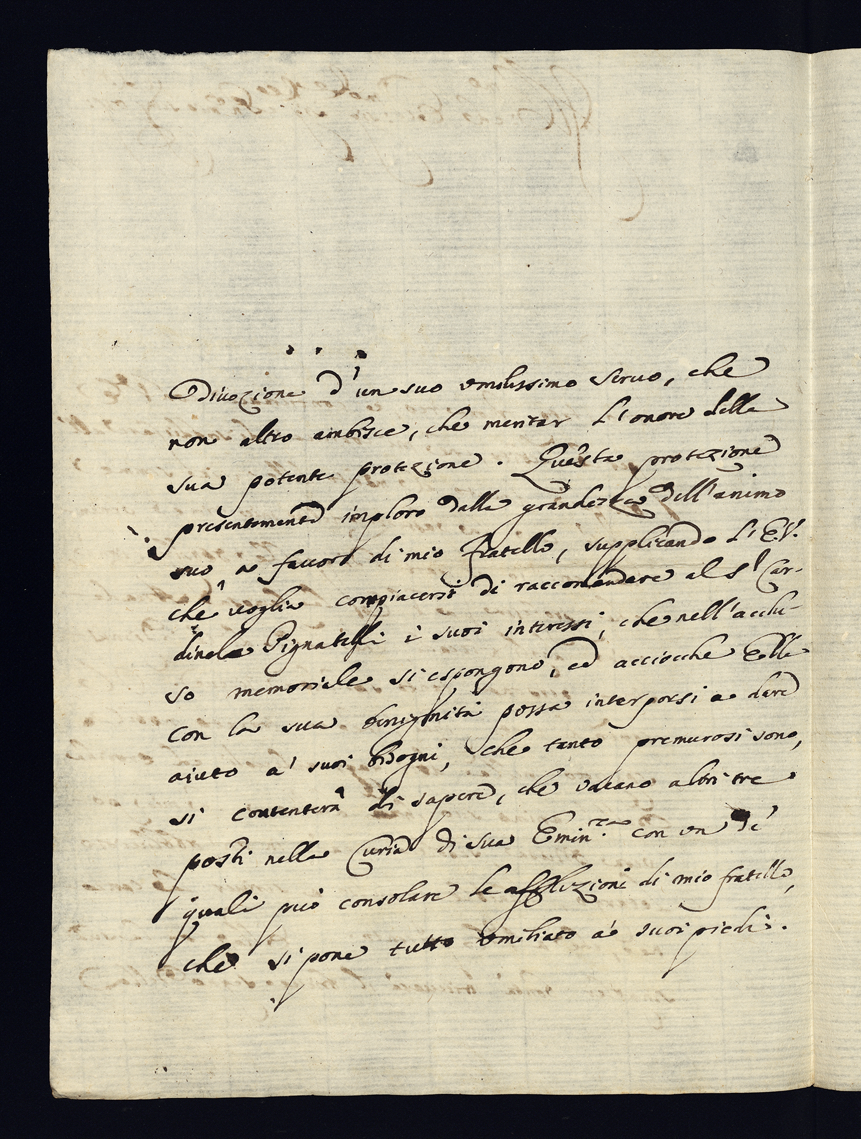 Divozione d'un suo umilissimo Servo, che
non altro ambisce, che meritar l'onore della
sua potente protezione. Questa protezione
presentemente imploro dalla grandezza dell'animo
suo a favore di mio fratello, supplicando L'E.V.
che voglia compiacersi di raccomandare al S.r Car-
dinale Pignatelli i suoi interessi, che nell'acchiu-
so memoriale si espongono, ed acciocche Ella
con la sua benignità possa interporsi a dare
aiuto a' suoi bisogni, che tanto premurosi sono,
si contenterà di sapere, che vacano altri tre
posti nella Curia di Sua Emin.za con un de'
quali può consolare le afflizioni di mio fratello,
che si pone tutto umiliato a' suoi piedi.